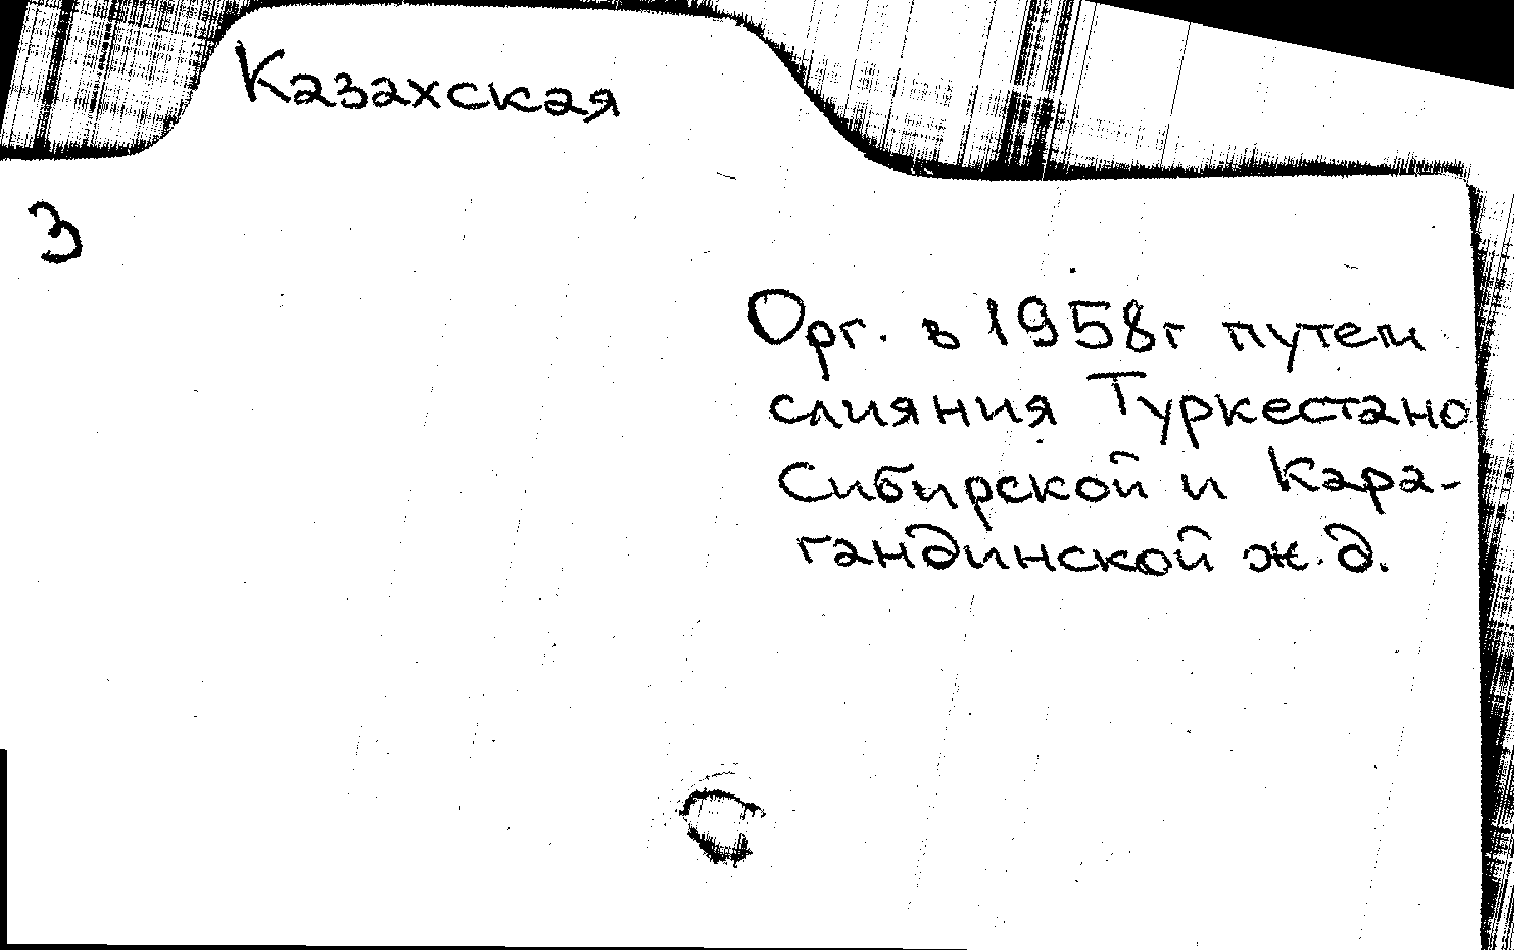 Казахская
3
Орг. в 1958г путем
слияния Туркестано
Сибирской и Кара-
гандинской ж.д.